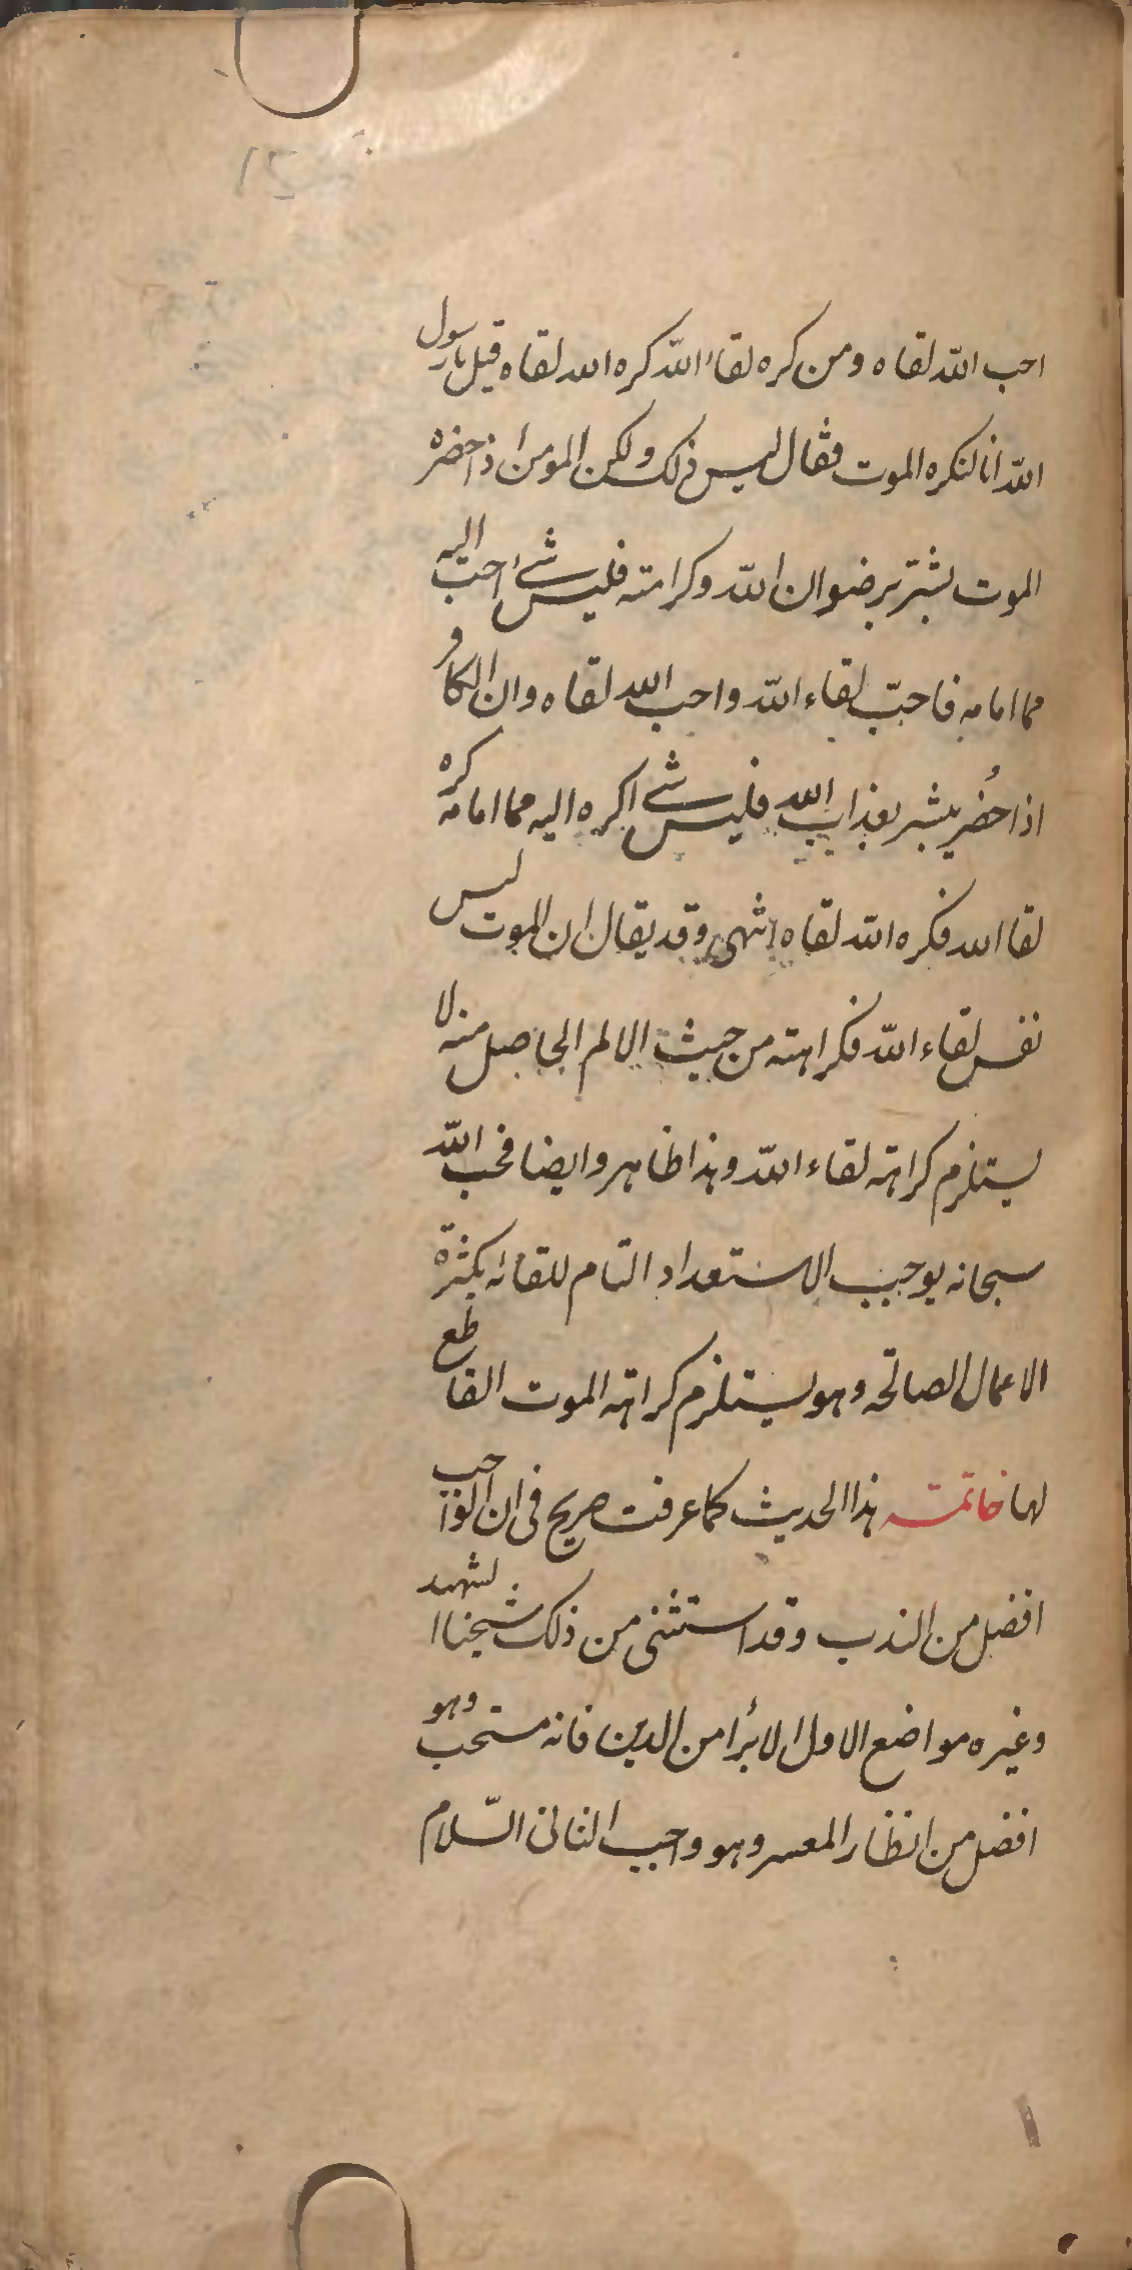 احب الله لقاه ومن كره لقاء الله كره الله لقاه قيل يا رسول
الله انا لنكره الموت فقال ليس ذلك ولكن المومن اذا حضره
الموت بشّر برضوان الله وكرامته فليس شئ احبّ اليه
مما امامه فاحبّ لقاء الله واحب الله لقاه وان الكافر
اذا حُضر يبشر بعذاب الله فليس شئ اكره اليه مما امامه كره
لقا الله فكره الله لقاه انتهى وقد يقال ان الموت ليس
نفس لقاء الله فكراهته من حيث الالم الحاصل منه لا
يستلزم كراهة لقاء الله وهذا ظاهر وايضا فحب الله
سبحانه يوجب الاستعداد التام للقائه بكثرة
الاعمال الصالحه وهو يستلزم كراهة الموت القاطع
لها خاتمة هذا الحديث كما عرفت صريح فى ان الواجب
افضل من الندب وقد استثنى من ذلك شيخنا الشهيد
وغيره مواضع الاول الابرأ من الدين فانه مستحب وهو
افضل من انظار المعسر وهو واجب الثانى السّلام